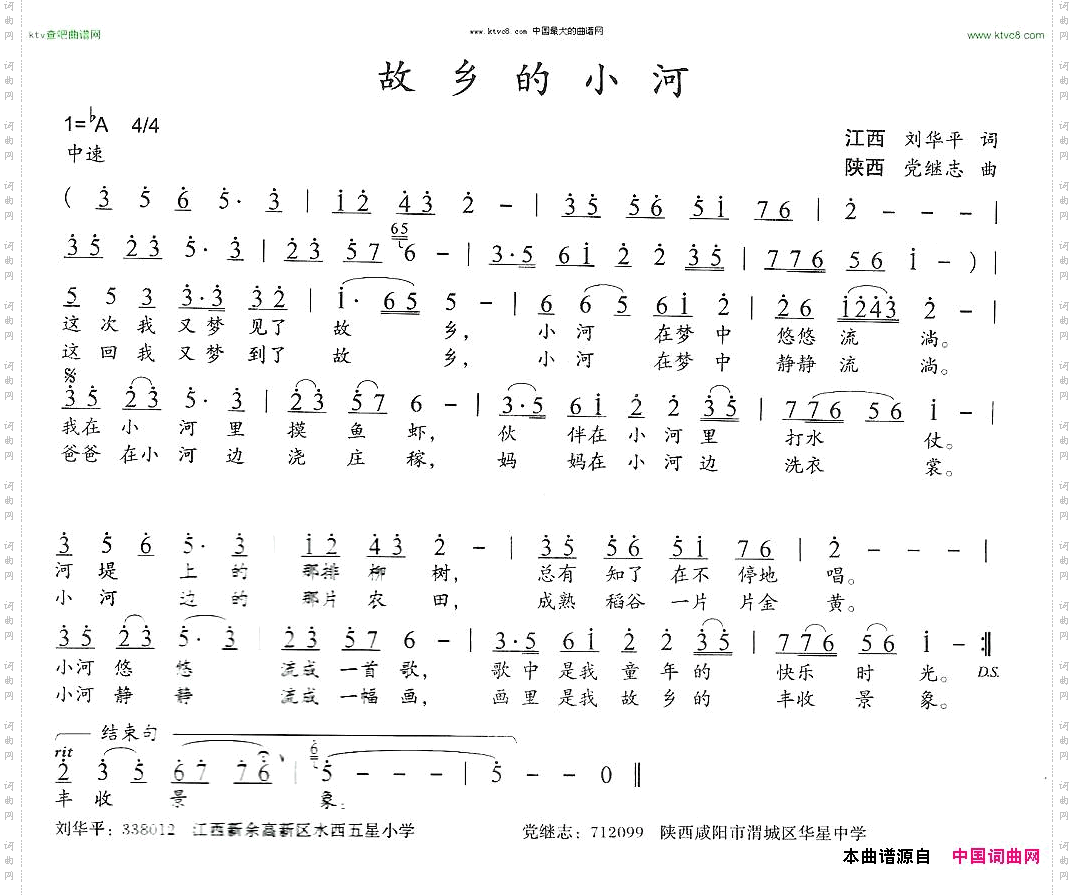 ktv查吧曲谱网 www.ktvc8.com 中国最大的曲谱网 www.ktvc8.com
故乡的小河
1=♭A 4/4
中速
江西 刘华平 词
陕西 党继志 曲
( 3 5 6 5· 3 | 1 2 4 3 2 - | 3 5 5 6 5 1 7 6 | 2 - - - |
3 5 2 3 5· 3 | 2 3 5 7 65 6 - | 3·5 6 1 2 2 3 5 | 7 7 6 5 6 1 - ) |
5 5 3 3·3 3 2 | 1· 6 5 5 - | 6 6 5 6 1 2 | 2 6 1 2 4 3 2 - |
这次我又梦见了故乡,小河在梦中悠悠流淌。
这回我又梦到了故乡,小河在梦中静静流淌。
3 5 2 3 5· 3 | 2 3 5 7 6 - | 3·5 6 1 2 2 3 5 | 7 7 6 5 6 1 - |
我在小河里摸鱼虾,伙伴在小河里打水仗。
爸爸在小河边浇庄稼,妈妈在小河边洗衣裳。
3 5 6 5· 3 1 2 4 3 2 - | 3 5 5 6 5 1 7 6 | 2 - - - |
河堤上的那排柳树,总有知了在不停地唱。
小河边的那片农田,成熟稻谷一片片金黄。
3 5 2 3 5· 3 2 3 5 7 6 - | 3·5 6 1 2 2 3 5 | 7 7 6 5 6 1 - :‖
小河悠悠流成一首歌,歌中是我童年的快乐时光。 D.S.
小河静静流成一幅画,画里是我故乡的丰收景象。
结束句
rit
2 3 5 6 7 7 6 | 6 5 - - - | 5 - - 0 ‖
丰收景象。
刘华平:338012 江西新余高新区水西五星小学 党继志:712099 陕西咸阳市渭城区华星中学
本曲谱源自 中国词曲网